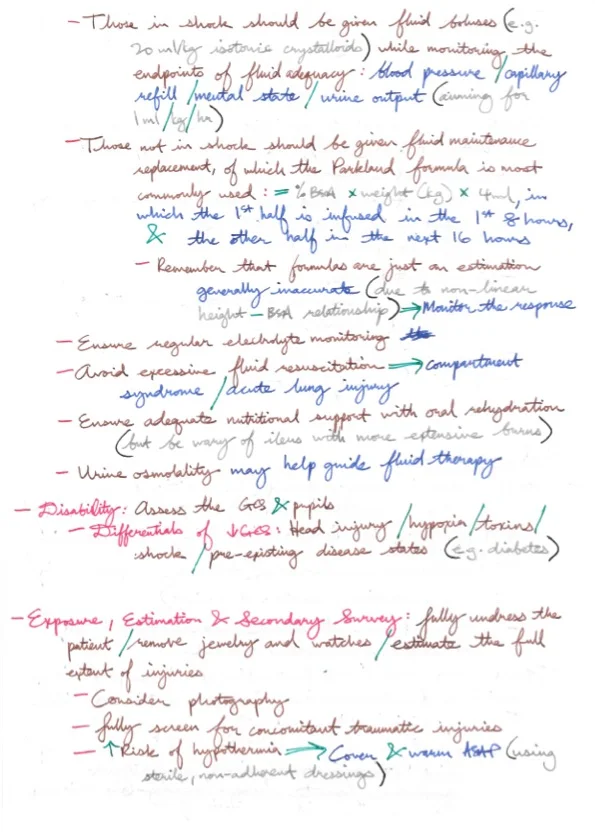 - Those in shock should be given fluid boluses (e.g.
20 ml/kg isotonic crystalloids) while monitoring the
endpoints of fluid adequacy: blood pressure / capillary
refill / mental state / urine output (aiming for
1ml/kg/hr)
- Those not in shock should be given fluid maintenance
replacement, of which the Parkland formula is most
commonly used: = % BSA × weight (kg) × 4ml, in
which the 1st half is infused in the 1st 8 hours,
& the other half in the next 16 hours
- Remember that formulas are just an estimation
generally inaccurate (due to non-linear
height - BSA relationship) → Monitor the response
- Ensure regular electrolyte monitoring
- Avoid excessive fluid resuscitation → compartment
syndrome / acute lung injury
- Ensure adequate nutritional support with oral rehydration
(but be wary of ileus with more extensive burns)
- Urine osmolality may help guide fluid therapy
- Disability: Assess the GCS & pupils
- Differentials of ↓GCS: Head injury / hypoxia / toxins /
shock / pre-existing disease states (e.g. diabetes)
- Exposure, Estimation & Secondary Survey: fully undress the
patient / remove jewelry and watches / estimate the full
extent of injuries
- Consider photography
- fully screen for concomitant traumatic injuries
- ↑ Risk of hypothermia → Cover & warm ASAP (using
sterile, non-adherent dressings)